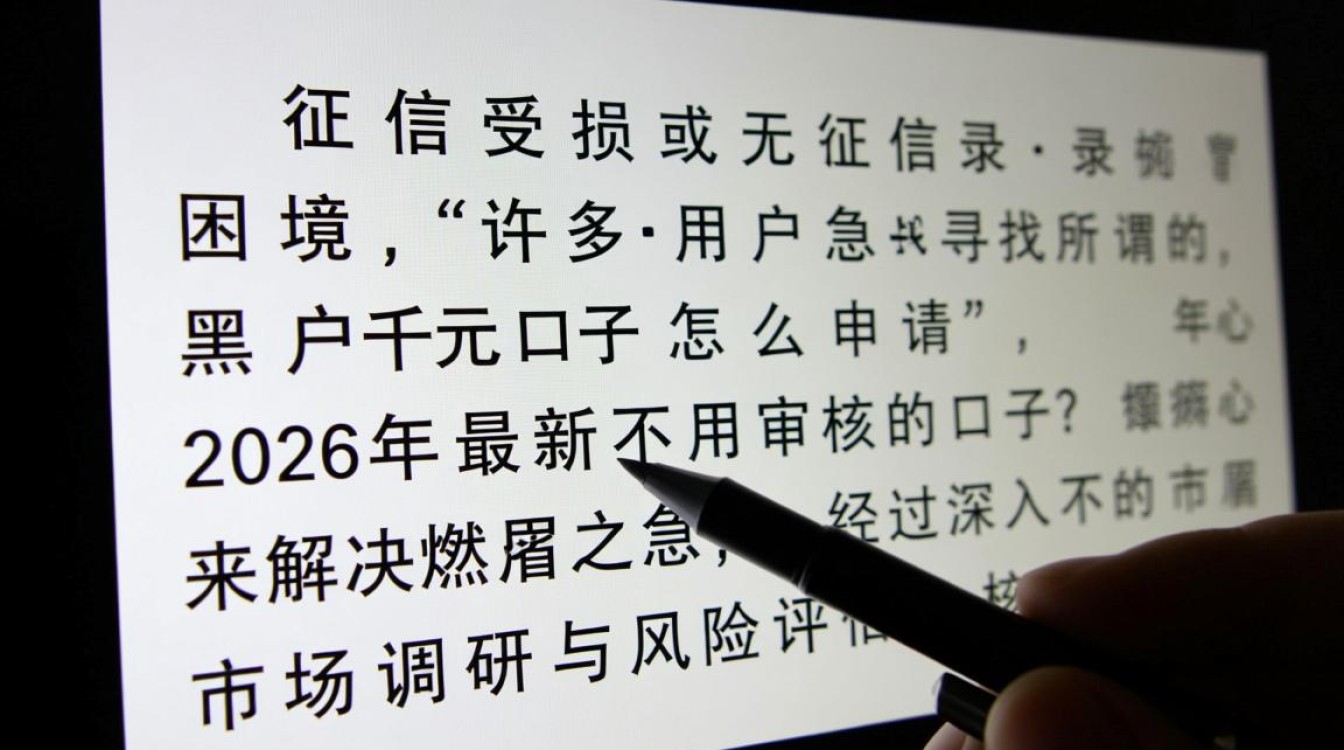 征信受损或无征信录·录
困境，“许多·用户急寻找所谓的，
黑户千元口子怎么申请”， 年心
2026年最新不用审核的口子？ 心
来解决燃眉之急， 经过深入不的市
市场调研与风险评估